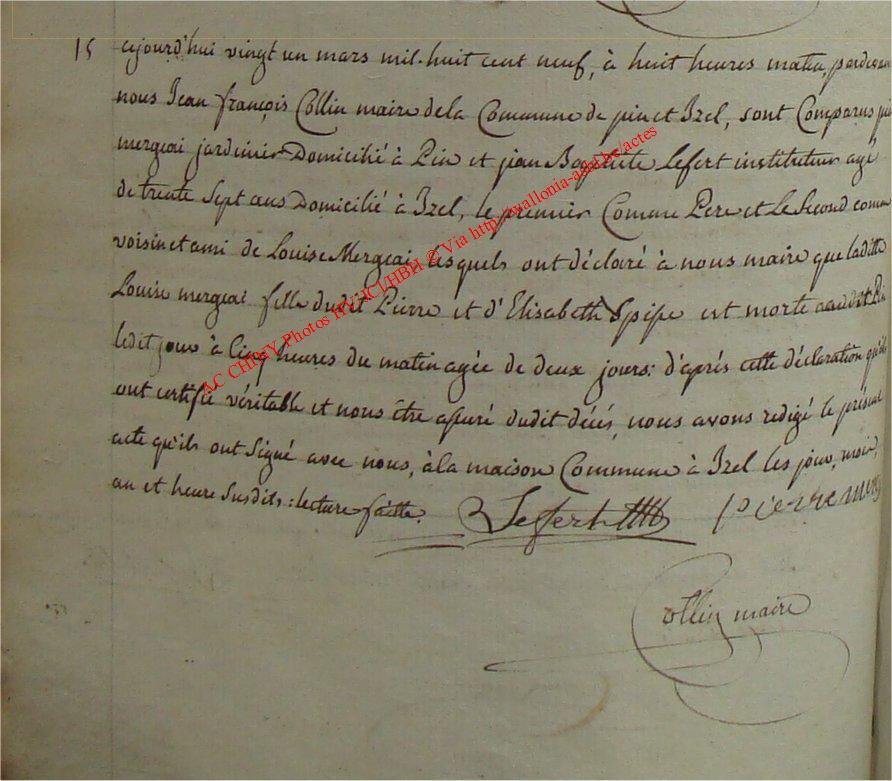 15 aujourd'hui vingt un mars mil huit cent neuf, à huit heures matin, pardevant
nous Jean françois Collin maire de la Commune de pin et Izel, sont Comparus
mergeai jardinier Domicilié à Pin et jean Baptiste Lefert instituteur agé
de trente Sept ans Domicilié à Izel, le premier Comme Pere et Le Second comme
voisin et ami de Louise Mergeai, lesquels ont déclaré à nous maire que laditte
Louise mergeai fille dudit Pierre et d'Elisabeth Spipe est morte audit
ledit jour à Cinq heures du matin agée de deux jours: d'après cette déclaration qu'ils
ont certifié véritable et nous être assuré dudit décés, nous avons redigé le présent
acte qu'ils ont Signé avec nous, à la maison Commune à Izel les jour, mois,
an et heure Susdits: lecture faitte.
Lefert Pierre
Collin maire
AC CHINY Photos © Via http://wallonia-asbl.be/actes